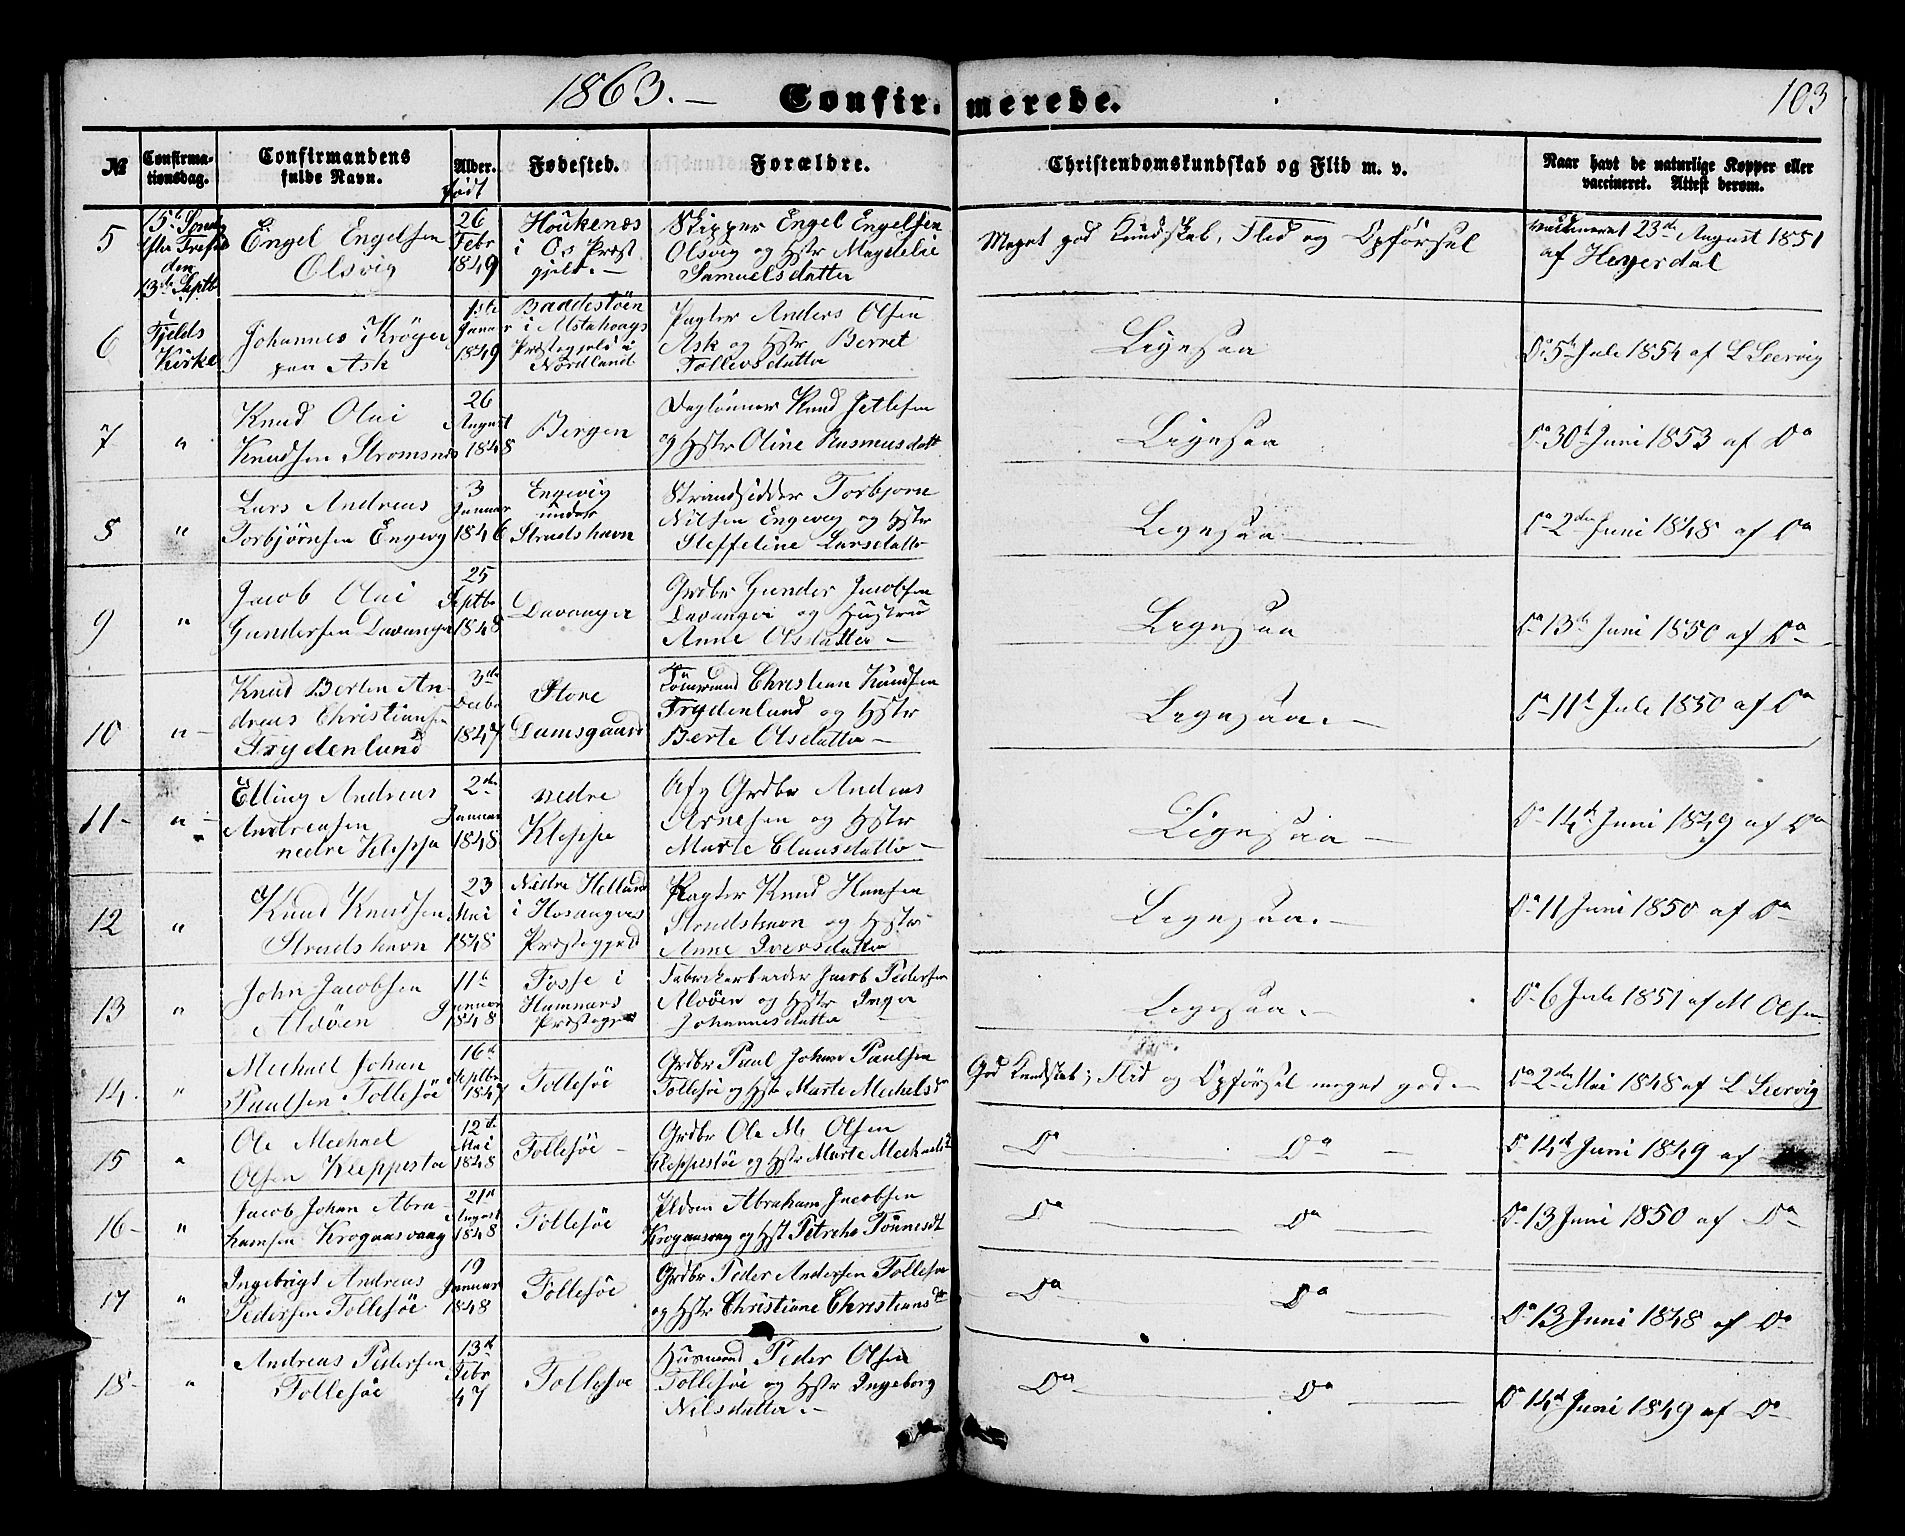 1863.— Confirmerede. 103
№ Confirmationsdag. Confirmandens fulde Navn. Alder. født Fødested. Forældre. Christendomskundskab og Flid m. v. Naar havt de naturlige Kopper eller vaccineret. Attest derom.
5 15de Søndag efter Trefold den 13de Septb i Fjelds Kirke Engel Engelsen Olsvig 26 Febr 1849 Houkenæs i Os Præstgjeld.— Skipper Engel Engelsen Olsvig og Hstr Magdelie Samuelsdatter Meget god Kundskab, Flid og Opførsel vaccineret 23de August 1851 af Heyerdal
6 Johannes Krøger paa Ask 1ste Januar 1849 i Alstahougs Præstegjeld i Nordland Pagter Anders Olsen Ask og Hstr Berret Tollevsdatter Ligesaa Do 5te Juli 1854 af L Leervig
7 " Knud Olai Knudsen Stromsnes 26 August 1848 Bergen Daglønner Knud Jetlesen og Hstr Oline Rasmusdatt Ligesaa Do 30te Juni 1853 af Do
8 " Lars Andreas Torbjørnsen Engevig 3 Januar 1846 Engevig under Strudshavn Strandsidder Torbjørn Nilsen Engevig og Hstr Steffeline Larsdatter Ligesaa Do 2den Juni 1848 af Do
9 " Jacob Olai Gundersen Davanger 25 Septbr 1848 Davanger Grdbr Gunder Jacobsen Davanger og Hustru Anne Olsdatter — Ligesaa Do 13de Juni 1850 af Do
10 " Knud Berten Andreas Christiansen Frydenlund 3de Decbr 1847 Store Damsgaard Christian Knudsen Frydenlund og Hstr Berte Olsdatter — Ligesaa. — Do 11te Juli 1850 af Do
11 — " Elling Andreas Andreasen nedre Kleppe 2den Januar 1848 nedre Kleppe Afg Grdbr Andreas Arnesen og Hstr Marte Claasdatter — Ligesaa — Do 14de Juni 1849 af Do
12 " Knud Knudsen Strudshavn 23 Mai 1848 Nedre Helland i Hosangers Præstegjeld Pagter Knud Hansen Strudshavn og Hstr Anne Iversdatter Ligesaa. — Do 11 Juni 1850 af Do
13 " John Jacobsen Alvøen 11te Januar 1848 Fosse i Hammers Præstegj Fabrikarbeider Jacob Pedersen Alvøen og Hstr Inger Johannesdatter Ligesaa. — Do 6 Juli 1851 af M Olsen
14. " Mechael Johan Paulsen Follesøe 16de Septbr 1847 Follesøe Grdbr Paul Johan Paulsen Follesøe og Hstr Marte Mechelsd God Kundskab; Flid og Opførsel meget god. — Do 2den Mai 1848 af L Leervig
15 " Ole Mechael Olsen Kleppestø 12te Mai 1848 Follesøe — Grdbr Ole M. Olsen Kleppestøe og Hstr Marte Mechaelsd Do — Do — Do 14de Juni 1849 af
16 — " Jacob Johan Abrahamsen Krogaasvaag 21de August 1848 Follesøe Abraham Jacobsen Krogaasvaag og Hst Petrche Tønnesdt Do — Do — Do 13 Juni 1850 af Do
17 " Ingebrigt Andreas Pedersen Follesøe 19 Januar 1848 Follesøe Grdbr Peder Andersen Follesøe og Hstr Christiane Christiansdr Do Do — Do 13 Juni 1848 af Do
18 — " Andreas Pedersen Follesøe 13de Febr 47 Follesøe Husmand Peder Olsen Follesøe og Hstr Ingeborg Nilsdatter. — Do — Do — Do 14de Juni 1849 af Do